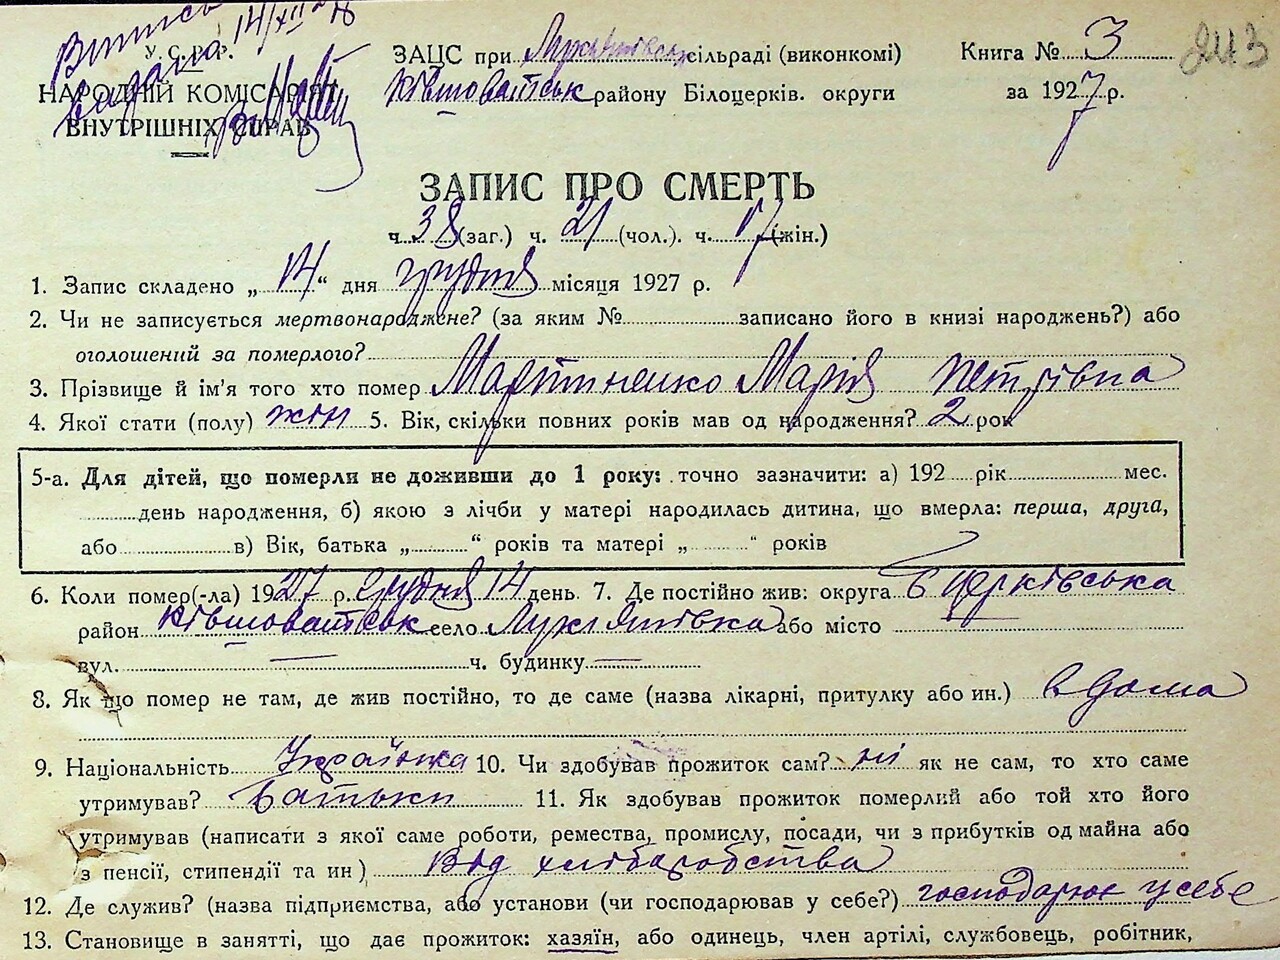 Витпис
видана 14/XII
У.С.Р.Р.
НАРОДНІЙ КОМІСАРІЯТ
ВНУТРІШНІХ СПРАВ
ЗАЦС при Лук'янівськ сільраді (виконкомі)
Ківшоватськ району Білоцерків. округи
Книга № 3
за 1927 р.
243
ЗАПИС ПРО СМЕРТЬ
ч. 38 (заг.) ч. 21 (чол.). ч. 17 (жін.)
1. Запис складено „ 14 “ дня грудня місяця 1927 р.
2. Чи не записується мертвонароджене? (за яким № записано його в книзі народжень?) або
оголошений за померлого?
3. Прізвище й ім'я того хто помер Мартиненко Марія Петрівна
4. Якої стати (полу) жін 5. Вік, скільки повних років мав од народження? 2 рок
5-а. Для дітей, що померли не доживши до 1 року: точно зазначити: а) 192 рік мес.
день народження, б) якою з лічби у матері народилась дитина, що вмерла: перша, друга,
або в) Вік, батька „ “ років та матері „ “ років
6. Коли помер(-ла) 1927 р. грудня 14 день. 7. Де постійно жив: округа Б Церківська
район Ківшоватськ село Лук'янівка або місто
вул. ч. будинку
8. Як що помер не там, де жив постійно, то де саме (назва лікарні, притулку або ин.) в дома
9. Національність Українка 10. Чи здобував прожиток сам? ні як не сам, то хто саме
утримував? батьки 11. Як здобував прожиток померлий або той хто його
утримував (написати з якої саме роботи, ремества, промислу, посади, чи з прибутків од майна або
з пенсії, стипендії та ин) від хліборобства
12. Де служив? (назва підприємства, або установи (чи господарював у себе?) господарює у себе
13. Становище в занятті, що дає прожиток: хазяїн, або одинець, член артілі, службовець, робітник,